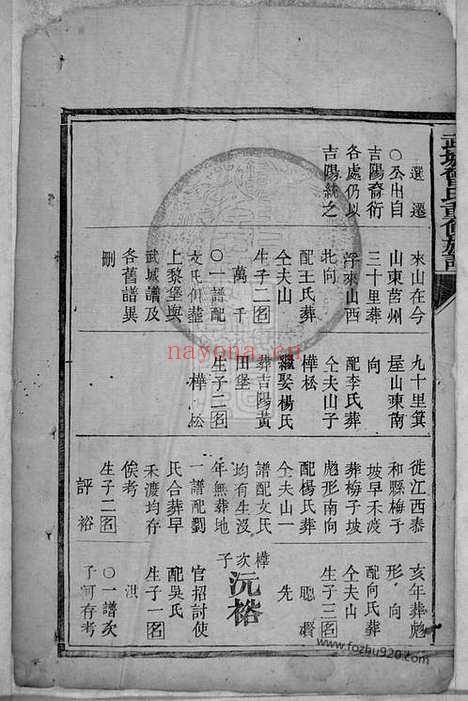 武城曾氏重修族譜
選遷
○公出自
吉陽裔衍
各處仍以
吉陽統之
來山在今
山東莒州
三十里葬
浮來山西
北向
配王氏葬
仝夫山
生子二名
萬 千
○一譜配
文氏俱葬
上黎堡與
武城譜及
各舊譜異
刪
九十里箕
屋山東南
向
配李氏葬
仝夫山子
樺松
繼娶楊氏
葬吉陽黃
田堡
生子二名
樺 松
徙江西泰
和縣梅子
坡早禾渡
葬梅子坡
彪形南向
配楊氏葬
仝夫山一
譜配文氏
均有生沒
年無葬地
一譜配劉
氏合葬早
禾渡均存
俟考
生子二名
評 裕
亥年葬彪
形 向
配向氏葬
仝夫山
生子三名
聰 爵
先
樺次子
沅裕
官招討使
配吳氏
生子一名
洪
○一譜次
子訶存考
nayona.cn
www.fozhu920.com